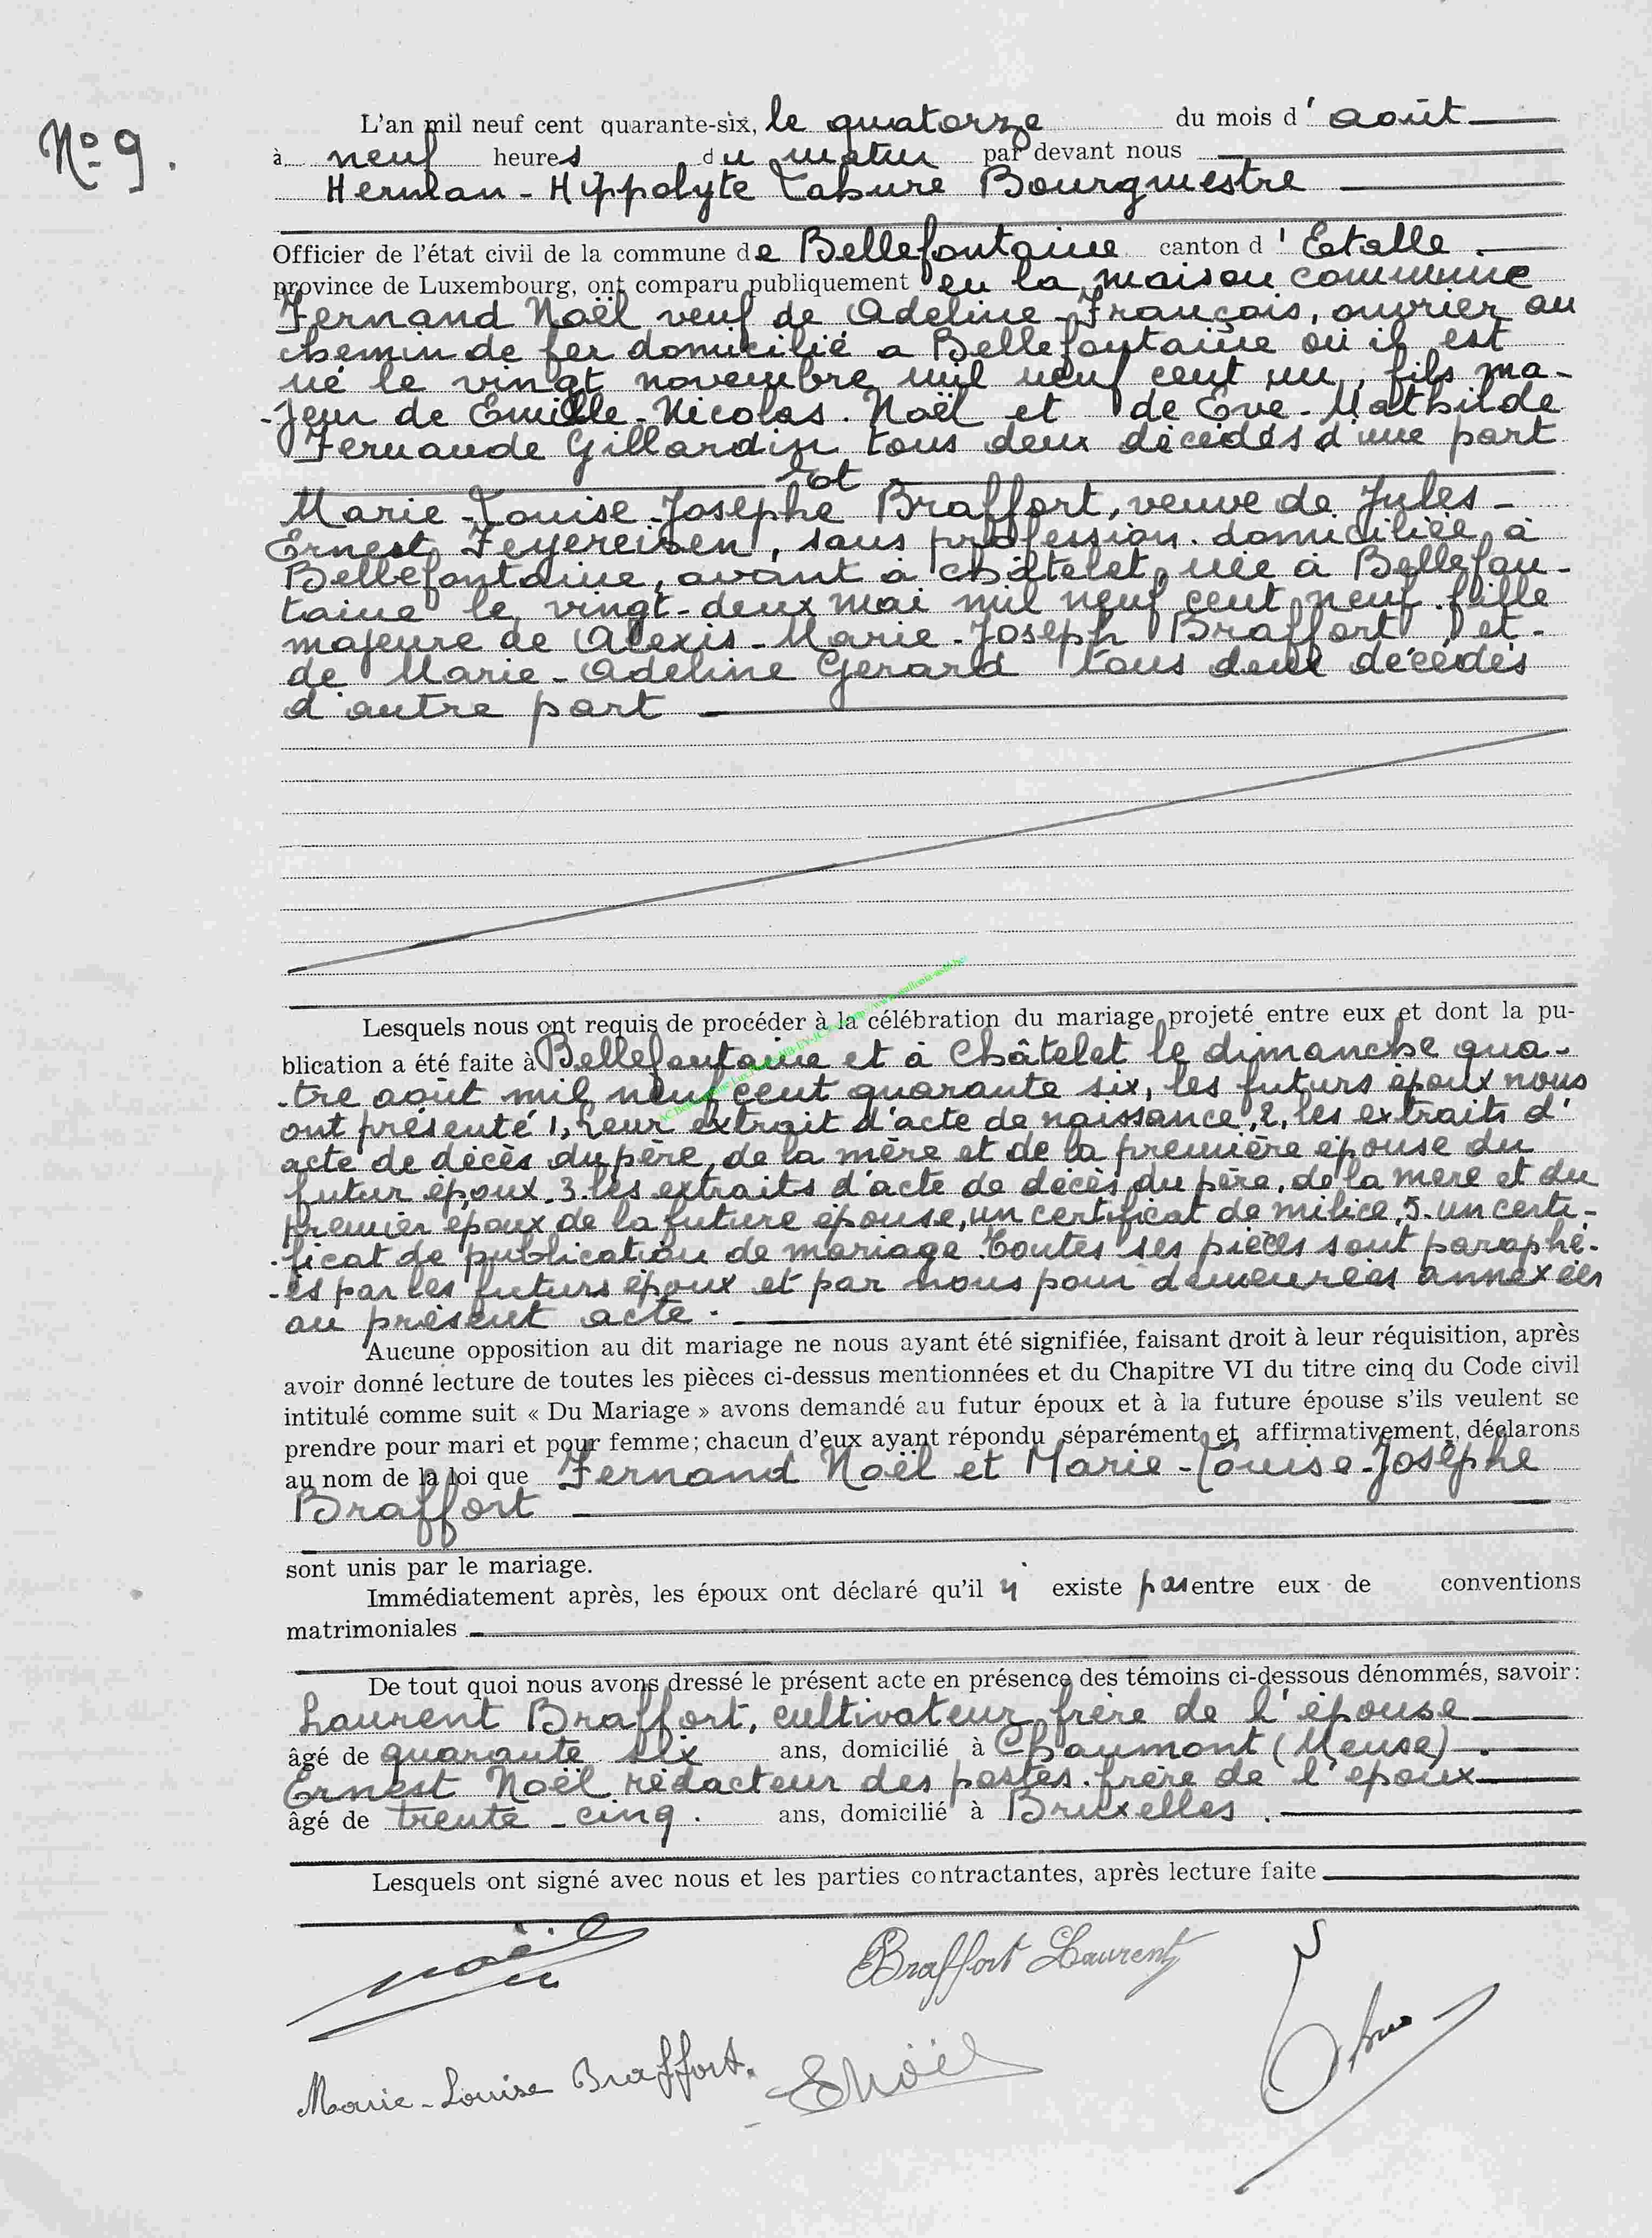 No 9.
L'an mil neuf cent quarante-six, le quatorze du mois d'août
à neuf heures du matin par devant nous
Herman-Hippolyte Labure Bourgmestre
Officier de l'état civil de la commune de Bellefontaine canton d'Etalle.
province de Luxembourg, ont comparu publiquement en la maison commune
Fernand Noël veuf de Adeline-François, ouvrier au
chemin de fer domicilié a Bellefontaine où il est
né le vingt novembre mil neuf cent un, fils ma-
-jeur de Emille-Nicolas. Noël et de Eve-Mathilde
Fernande Gillardin tous deux décédés d'une part
Et
Marie-Louise-Josèphe Braffort, veuve de Jules-
Ernest Feyereisen, sans profession. domiciliée à
Bellefontaine, avant à Châtelet, née à Bellefon-
taine le vingt-deux mai mil neuf cent neuf fille
majeure de Alexis-Marie-Joseph Braffort et-
de Marie-Adeline Gerard tous deux décédés
d'autre part
Lesquels nous ont requis de procéder à la célébration du mariage projeté entre eux et dont la pu-
blication a été faite à Bellefontaine et à Châtelet le dimanche qua-
-tre août mil neuf cent quarante six, les futurs époux nous
ont présenté 1, Leur extrait d'acte de naissance, 2, les extraits d'
acte de décès du père, de la mère et de la première épouse du
futur époux. 3. les extraits d'acte de décès du père, de la mere et du
premier époux de la future épouse, un certificat de milice, 5. un certi-
-ficat de publication de mariage toutes ses pièces sont paraphé-
-es par les futurs époux et par nous pour demeurées annexées
au présent acte.
Aucune opposition au dit mariage ne nous ayant été signifiée, faisant droit à leur réquisition, après
avoir donné lecture de toutes les pièces ci-dessus mentionnées et du Chapitre VI du titre cinq du Code civil
intitulé comme suit « Du Mariage » avons demandé au futur époux et à la future épouse s'ils veulent se
prendre pour mari et pour femme; chacun d'eux ayant répondu séparément et affirmativement, déclarons
au nom de la loi que Fernand Noël et Marie-Louise-Josèphe
Braffort
sont unis par le mariage.
Immédiatement après, les époux ont déclaré qu'il n'existe pas entre eux de conventions
matrimoniales
De tout quoi nous avons dressé le présent acte en présence des témoins ci-dessous dénommés, savoir:
Laurent Braffort, cultivateur frère de l'épouse
âgé de quarante six ans, domicilié à Chaumont (Meuse).
Ernest Noël rédacteur des postes. frère de l'époux
âgé de trente-cinq. ans, domicilié à Bruxelles.
Lesquels ont signé avec nous et les parties contractantes, après lecture faite
Noël
Braffort Laurent
Marie-Louise Braffort.
ENoël